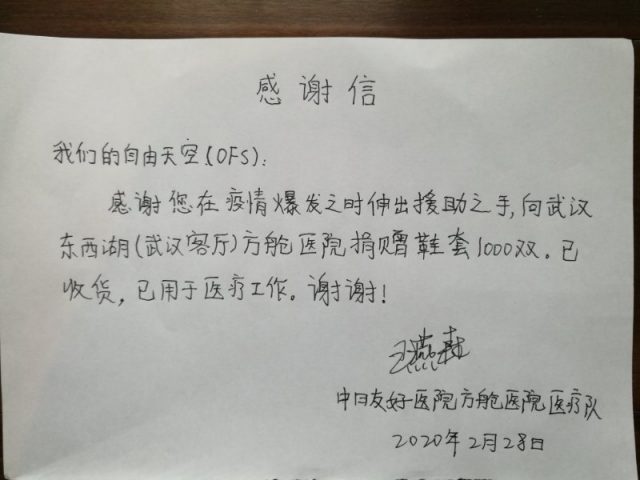 感谢信
我们的自由天空(OFS):
感谢您在疫情爆发之时伸出援助之手,向武汉
东西湖(武汉客厅)方舱医院捐赠鞋套1000双。已
收货,已用于医疗工作。谢谢!
王燕森
中日友好医院方舱医院医疗队
2020年2月28日